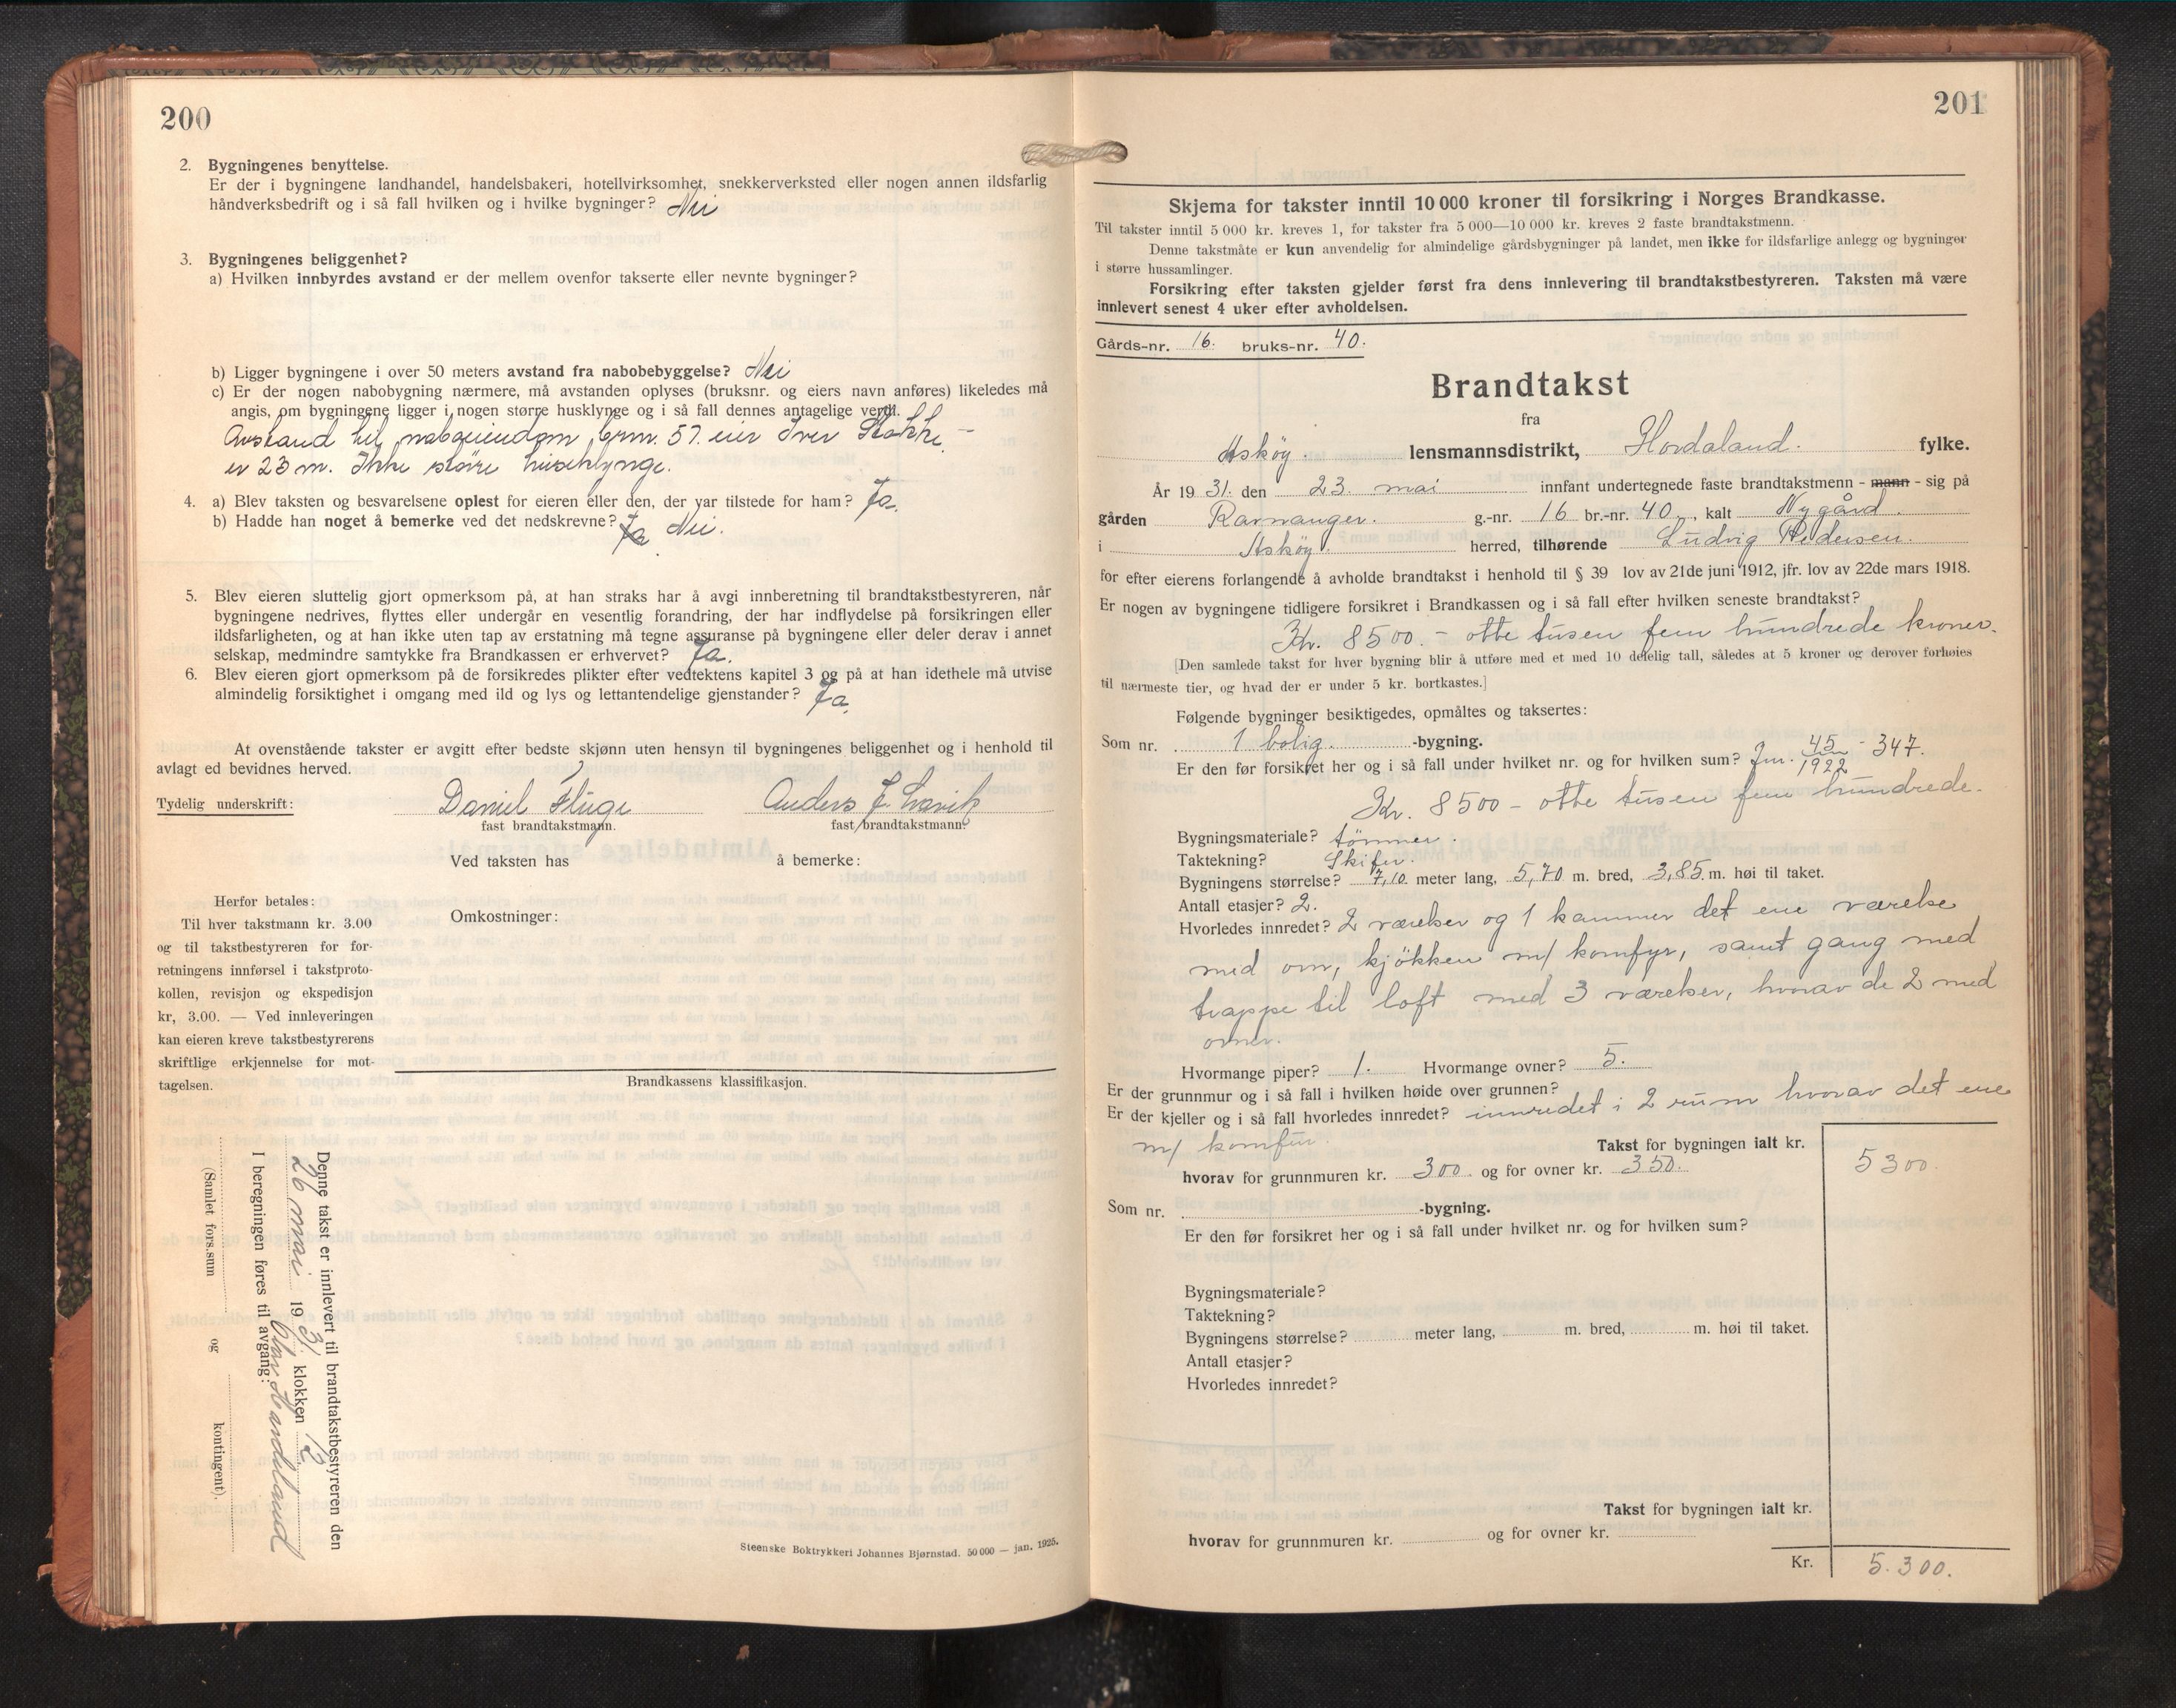 200
2. Bygningenes benyttelse.
Er der i bygningene landhandel, handelsbakeri, hotellvirksomhet, snekkerverksted eller nogen annen ildsfarlig
håndverksbedrift og i så fall hvilken og i hvilke bygninger? Nei
3. Bygningenes beliggenhet?
a) Hvilken innbyrdes avstand er der mellem ovenfor takserte eller nevnte bygninger?
b) Ligger bygningene i over 50 meters avstand fra nabobebyggelse? Nei
c) Er der nogen nabobygning nærmere, må avstanden oplyses (bruksnr. og eiers navn anføres) likeledes må
angis, om bygningene ligger i nogen større husklynge og i så fall dennes antagelige verdi.
Avstand til naboeiendom brn. 57. eier Iver Stokke –
er 23 m. Ikke större huseklynge.
4. a) Blev taksten og besvarelsene oplest for eieren eller den, der var tilstede for ham? Ja.
b) Hadde han noget å bemerke ved det nedskrevne? Ja Nei.
5. Blev eieren sluttelig gjort opmerksom på, at han straks har å avgi innberetning til brandtakstbestyreren, når
bygningene nedrives, flyttes eller undergår en vesentlig forandring, der har indflydelse på forsikringen eller
ildsfarligheten, og at han ikke uten tap av erstatning må tegne assuranse på bygningene eller deler derav i annet
selskap, medmindre samtykke fra Brandkassen er erhvervet? Ja.
6. Blev eieren gjort opmerksom på de forsikredes plikter efter vedtektens kapitel 3 og på at han idethele må utvise
almindelig forsiktighet i omgang med ild og lys og lettantendelige gjenstander? Ja.
At ovenstående takster er avgitt efter bedste skjønn uten hensyn til bygningenes beliggenhet og i henhold til
avlagt ed bevidnes herved.
Tydelig underskrift: Daniel Fluge Anders J.
fast brandtakstmann. fast brandtakstmann.
Ved taksten has å bemerke:
Omkostninger:
Herfor betales:
Til hver takstmann kr. 3.00
og til takstbestyreren for for-
retningens innførsel i takstproto-
kollen, revisjon og ekspedisjon
kr, 3.00. — Ved innleveringen
kan eieren kreve takstbestyrerens
skriftlige erkjennelse for mot-
tagelsen.
Brandkassens klassifikasjon.
Denne takst er innlevert til brandtakstbestyreren den
26 mai 1931. klokken 12
Olav Handeland
I beregningen føres til avgang:
(Samlet fors.sum og kontingent).
Steenske Boktrykkeri Johannes Bjørnstad. 50 000 — jan. 1925.
201
Skjema for takster inntil 10 000 kroner til forsikring i Norges Brandkasse.
Til takster inntil 5 000 kr. kreves 1, for takster fra 5 000—10 000 kr. kreves 2 faste brandtakstmenn.
Denne takstmåte er kun anvendelig for almindelige gårdsbygninger på landet, men ikke for ildsfarlige anlegg og bygninger
i større hussamlinger.
Forsikring efter taksten gjelder først fra dens innlevering til brandtakstbestyreren. Taksten må være
innlevert senest 4 uker efter avholdelsen.
Gårds-nr. 16. bruks-nr. 40.
Brandtakst
fra
Asköy. lensmannsdistrikt, Hordaland. fylke.
År 1931. den 23. mai innfant undertegnede faste brandtakstmenn - mann - sig på
gården Ravnanger. g.-nr. 16 br.-nr. 40., kalt Nygård.
i Asköy. herred, tilhørende Ludvig Pedersen.
for efter eierens forlangende å avholde brandtakst i henhold til § 39 lov av 21de juni 1912, jfr. lov av 22de mars 1918.
Er nogen av bygningene tidligere forsikret i Brandkassen og i så fall efter hvilken seneste brandtakst?
Kr. 8500. – otte tusen fem hundrede kroner.
[Den samlede takst for hver bygning blir å utføre med et med 10 delelig tall, således at 5 kroner og derover forhøies
til nærmeste tier, og hvad der er under 5 kr. bortkastes.]
Følgende bygninger besiktigedes, opmåltes og taksertes:
Som nr. 1 bolig. -bygning.
Er den før forsikret her og i så fall under hvilket nr. og for hvilken sum? Jnr. 45/1922 - 347.
Kr. 8500 – otte tusen fem hundrede.
Bygningsmateriale? tömmer.
Taktekning? Skifer.
Bygningens størrelse? 7,10. meter lang, 5,70 m. bred, 3,85. m. høi til taket.
Antall etasjer? 2.
Hvorledes innredet? 2 værelser og 1 kammer det ene værelse
med ovn, kjökken m/ komfyr, samt gang med
trappe til loft med 3 værelser, hvorav de 2 med
ovner.
Hvormange piper? 1. Hvormange ovner? 5.
Er der grunnmur og i så fall i hvilken høide over grunnen?
Er der kjeller og i så fall hvorledes innredet? innredet i 2 rum hvorav det ene
m/ komfur.
Takst for bygningen ialt kr. 5300.
hvorav for grunnmuren kr. 300. og for ovner kr. 350.
Som nr. -bygning.
Er den før forsikret her og i så fall under hvilket nr. og for hvilken sum?
Bygningsmateriale?
Taktekning?
Bygningens størrelse? meter lang, m. bred, m. høi til taket.
Antall etasjer?
Hvorledes innredet?
Takst for bygningen ialt kr.
hvorav for grunnmuren kr. og for ovner kr.
Kr. 5.300.